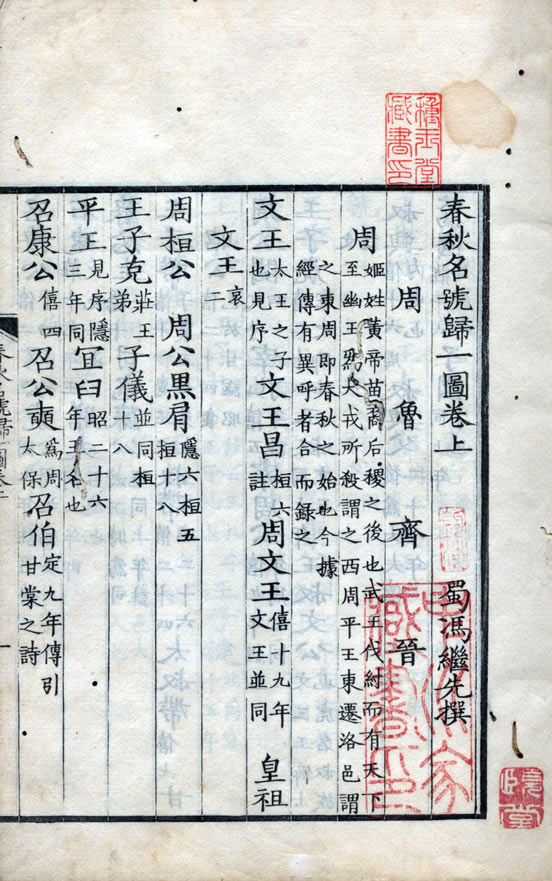 春秋名號歸一圖卷上　蜀馮繼先撰
周　魯　齊　晉
周　姬姓黃帝苗裔后稷之後也武王伐紂而有天下
至幽王為犬戎所殺謂之西周平王東遷洛邑謂
之東周即春秋之始也今據
經傳有異呼者合而錄之
文王　太王之子也見序　文王昌　桓六註　周文王　僖十九年文王並同　皇祖
文王　哀二
周桓公　周公黑肩　隱六桓五桓十八
王子克　莊王弟　子儀　並同桓十八
平王　見序隱三年同　宜臼　昭二十六年
召康公　僖四　召公奭　為周太保　召伯　定九年傳引甘棠之詩
種玉堂藏書印